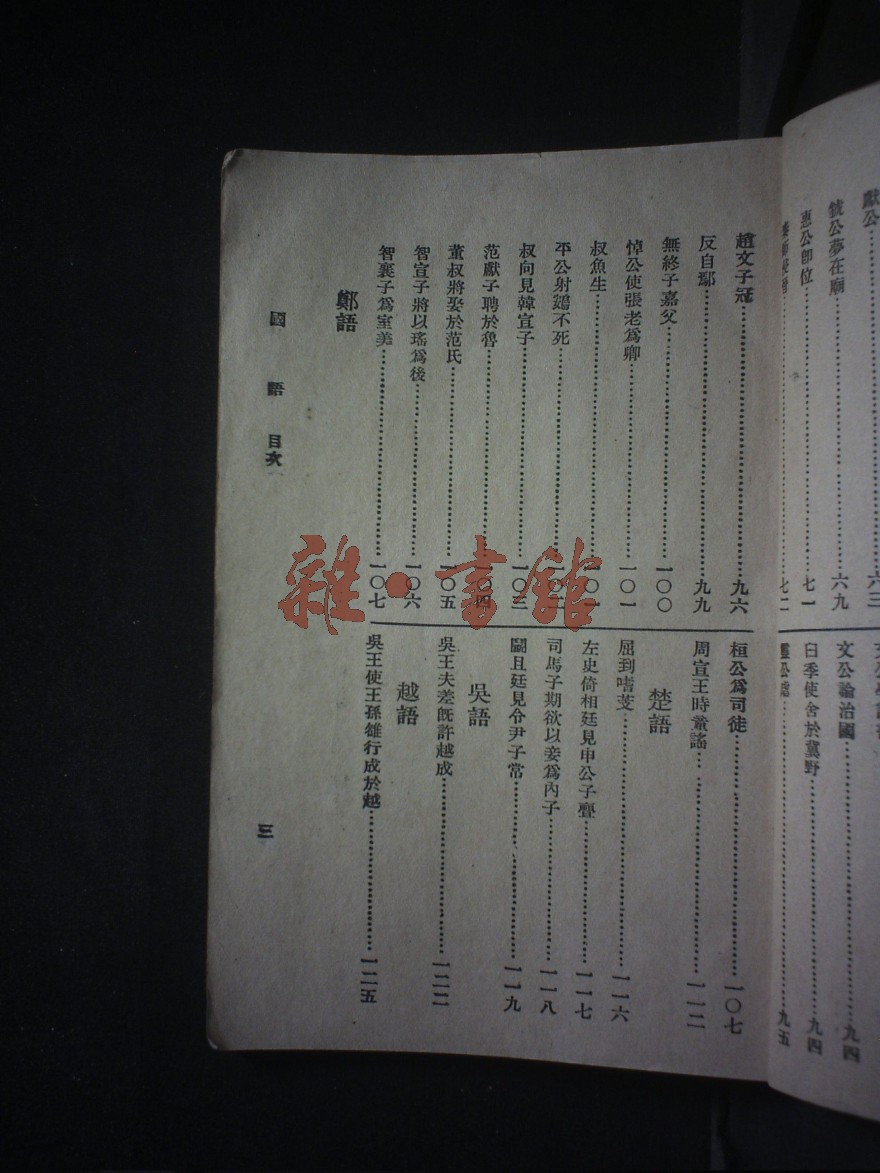 獻公……六三
虢公夢在廟……六九
惠公卽位……七一
七二
文公論治國……九四
臼季使舍於冀野……九四
靈公虐……九五
趙文子冠……九六
反自鄢……九九
無終子嘉父……一〇〇
悼公使張老爲卿……一〇一
叔魚生……一〇一
平公射鴳不死……一〇二
叔向見韓宣子……一〇三
范獻子聘於魯……一〇四
董叔將娶於范氏……一〇五
智宣子將以瑤爲後……一〇六
智襄子爲室美……一〇七
鄭語
桓公爲司徒……一〇七
周宣王時童謠……一一二
楚語
屈到嗜芰……一一六
左史倚相廷見申公子亹……一一七
司馬子期欲以妾爲內子……一一八
鬬且廷見令尹子常……一一九
吳語
吳王夫差旣許越成……一二二
越語
吳王使王孫雄行成於越……一二五
國語 目次
三
雜·書館